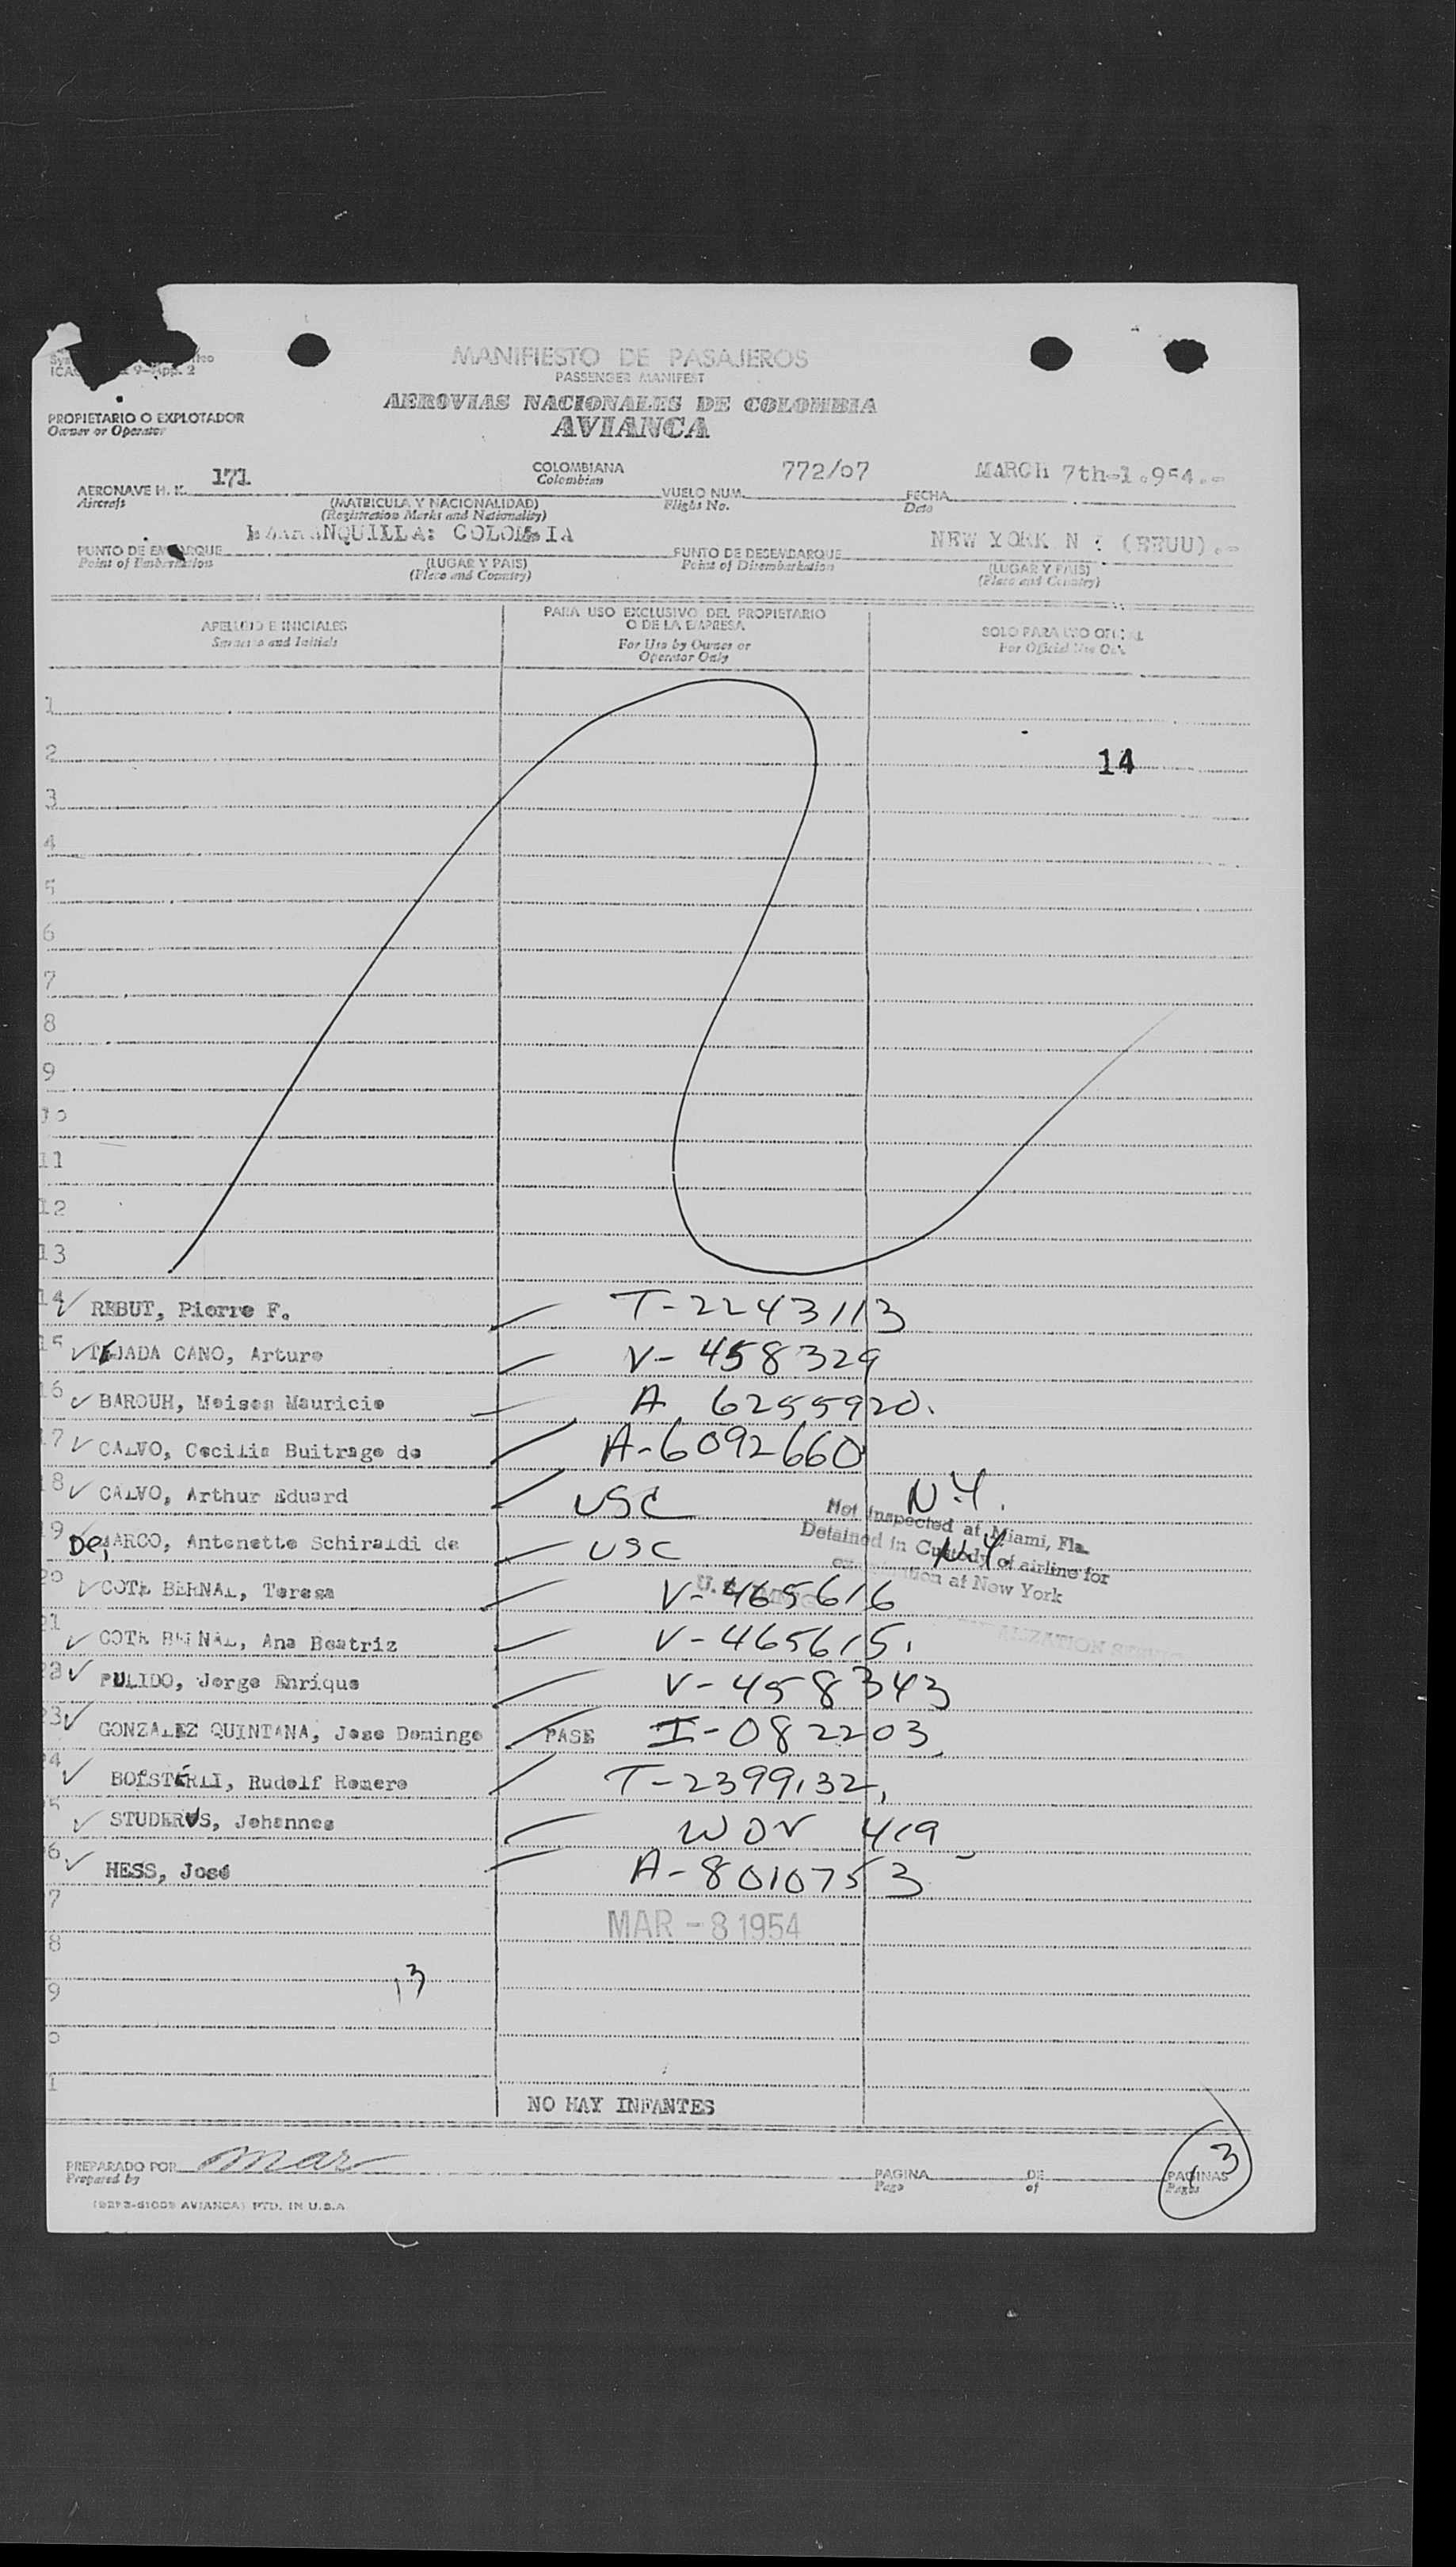 ICA 9-App. 2
MANIFIESTO DE PASAJEROS
PASSENGER MANIFEST
AEROVIAS NACIONALES DE COLOMBIA
AVIANCA
PROPIETARIO O EXPLOTADOR
Owner or Operator
AERONAVE H. K. 171 COLOMBIANA VUELO NUM. 772/07 FECHA MARCH 7th-1.954.-
Aircraft Colombian Flight No. Date
(MATRICULA Y NACIONALIDAD)
(Registration Marks and Nationality)
PUNTO DE EMBARQUE BARRANQUILLA: COLOMBIA PUNTO DE DESEMBARQUE NEW YORK N (EEUU).-
Point of Embarkation (LUGAR Y PAIS) Point of Disembarkation (LUGAR Y PAIS)
(Place and Country) (Place and Country)
APELLIDO E INICIALES PARA USO EXCLUSIVO DEL PROPIETARIO O DE LA EMPRESA SOLO PARA USO OFICIAL
Surname and Initials For Use by Owner or Operator Only For Official Use Only
1
2 14
3
4
5
6
7
8
9
10
11
12
13
14 REBUT, Pierre F. T-2243113
15 TEJADA CANO, Arturo V-458329
16 BAROUH, Moises Mauricio A 6255920.
17 CALVO, Cecilia Buitrago de A-6092660
18 CALVO, Arthur Eduard USC N.Y.
Not Inspected at Miami, Fla.
Detained in Custody of airline for
examination at New York
19 DeMARCO, Antonette Schiraldi de USC N.Y
20 COTE BERNAL, Teresa V-465616
21 COTE BERNAL, Ana Beatriz V-465615.
22 PULIDO, Jorge Enrique V-458343
23 GONZALEZ QUINTANA, Jose Domingo PASE I-082203
24 BOESTERLI, Rudolf Romero T-2399132
5 STUDERUS, Johannes WOV 419
6 HESS, José A-8010753
7 MAR -8 1954
8
9 13
0
1
NO HAY INFANTES
PREPARADO POR mar PAGINA DE PAGINAS 13
Prepared by Page of Pages
AVIANCA) PTD. IN U.S.A